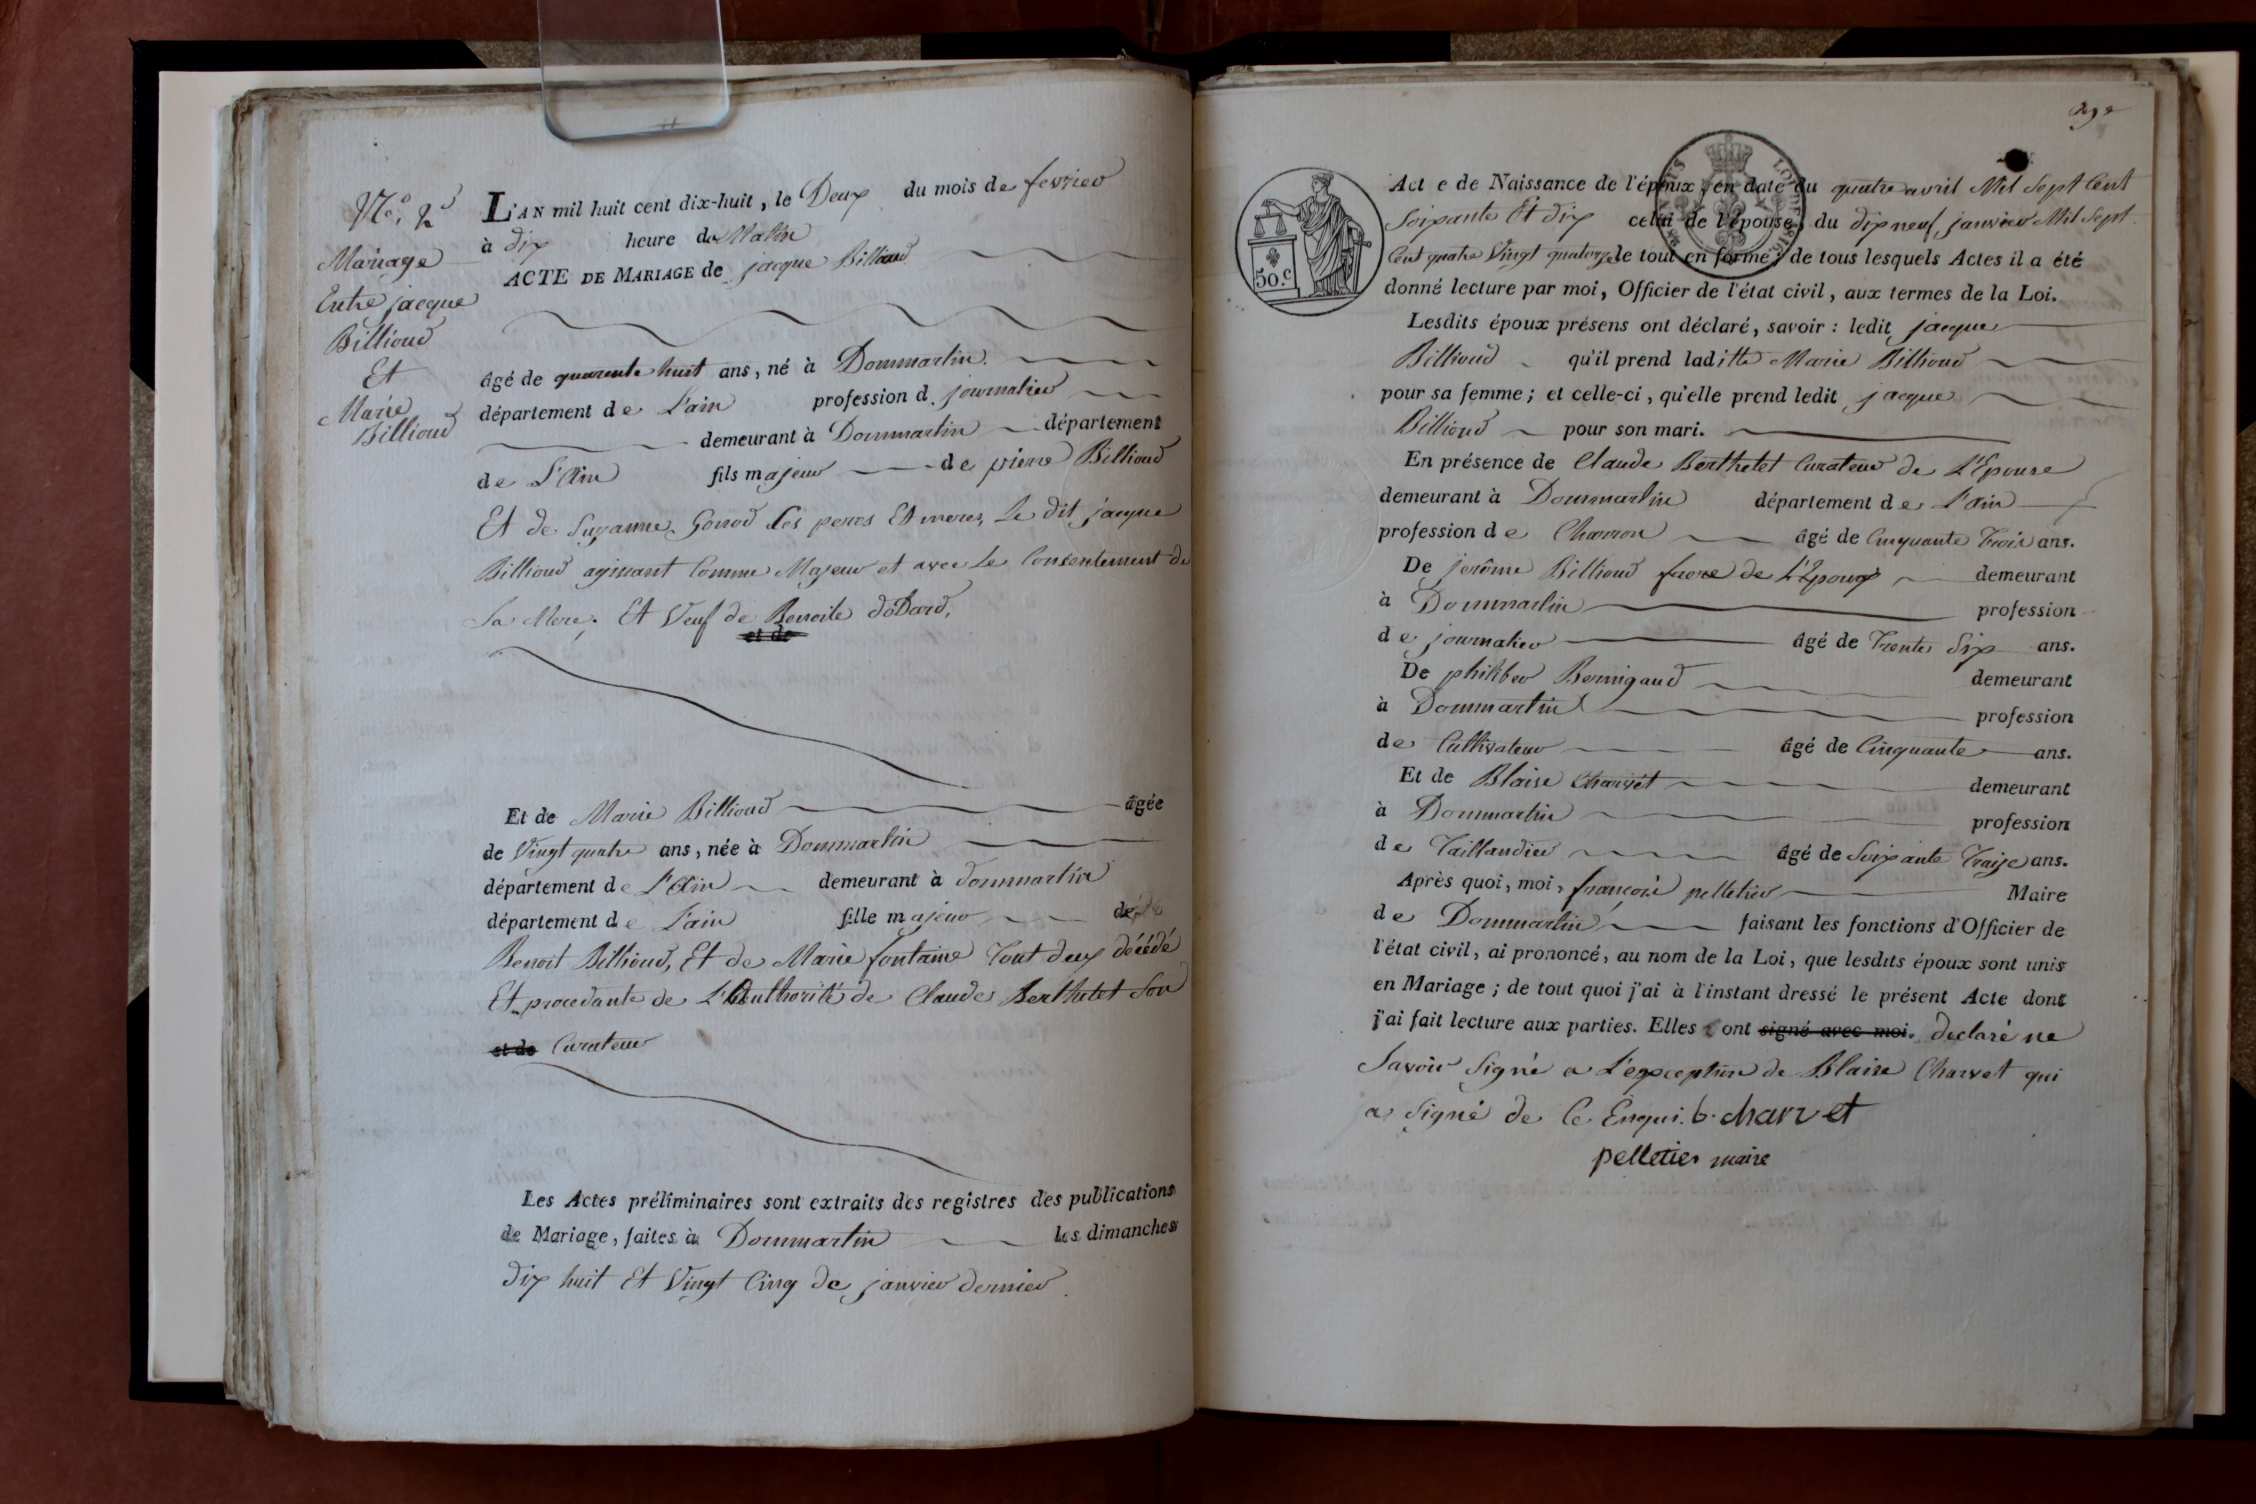 No. 2
Mariage
Entre jacque
Billioud
Et
Marie
Billioud
L'AN mil huit cent dix-huit, le Deux du mois de fevrier
à dix heure du Matin
ACTE DE MARIAGE de jacque Billioud
âgé de quarente huit ans, né à Dommartin
département de L'ain profession d. journalier
demeurant à Dommartin département
de L'Ain fils majeur de pierre Billioud
Et de Suzanne Gonod Ses peres Et meres, Le dit jacque
Billioud agissant Comme Majeur et avec Le Consentement de
Sa Mere; Et Veuf de Benoite doDard,
et de
Et de Marie Billioud âgée
de Vingt quatre ans, née à Dommartin
département de L'Ain demeurant à dommartin
département de L'ain fille majeur de
Benoit Billioud, Et de Marie fontaine Tout deux décédé
Et procedante de L'Authorité de Claude Berthelet Son
et de Curateur
Les Actes préliminaires sont extraits des registres des publications
de Mariage, faites à Dommartin les dimanches
dix huit Et Vingt Cinq de janvier dernier
50.c
Acte de Naissance de l'époux, en date du quatre avril Mil Sept Cent
Soixante Et dix celui de l'épouse, du dix neuf janvier Mil Sept
Cent quatre Vingt quatorze le tout en forme; de tous lesquels Actes il a été
donné lecture par moi, Officier de l'état civil, aux termes de la Loi.
Lesdits époux présens ont déclaré, savoir: ledit jacque
Billioud qu'il prend laditte Marie Billioud
pour sa femme; et celle-ci, qu'elle prend ledit jacque
Billioud pour son mari.
En présence de Claude Berthelet Curateur de L'Epouse
demeurant à Dommartin département de L'ain
profession de Charron âgé de Cinquante Trois ans.
De jerôme Billioud frere de L'Epoux demeurant
à Dommartin profession
de journalier âgé de Trente Six ans.
De philiber Bernigaud demeurant
à Dommartin profession
de Cultivateur âgé de Cinquante ans.
Et de Blaise Charvet demeurant
à Dommartin profession
de Taillandier âgé de Soixante Traize ans.
Après quoi, moi, françois pelletier Maire
de Dommartin faisant les fonctions d'Officier de
l'état civil, ai prononcé, au nom de la Loi, que lesdits époux sont unis
en Mariage; de tout quoi j'ai à l'instant dressé le présent Acte dont
j'ai fait lecture aux parties. Elles ont signé avec moi. declaré ne
Savoir Signé a L'exception de Blaise Charvet qui
a Signé de Ce Enqui. b. charvet
pelletier maire